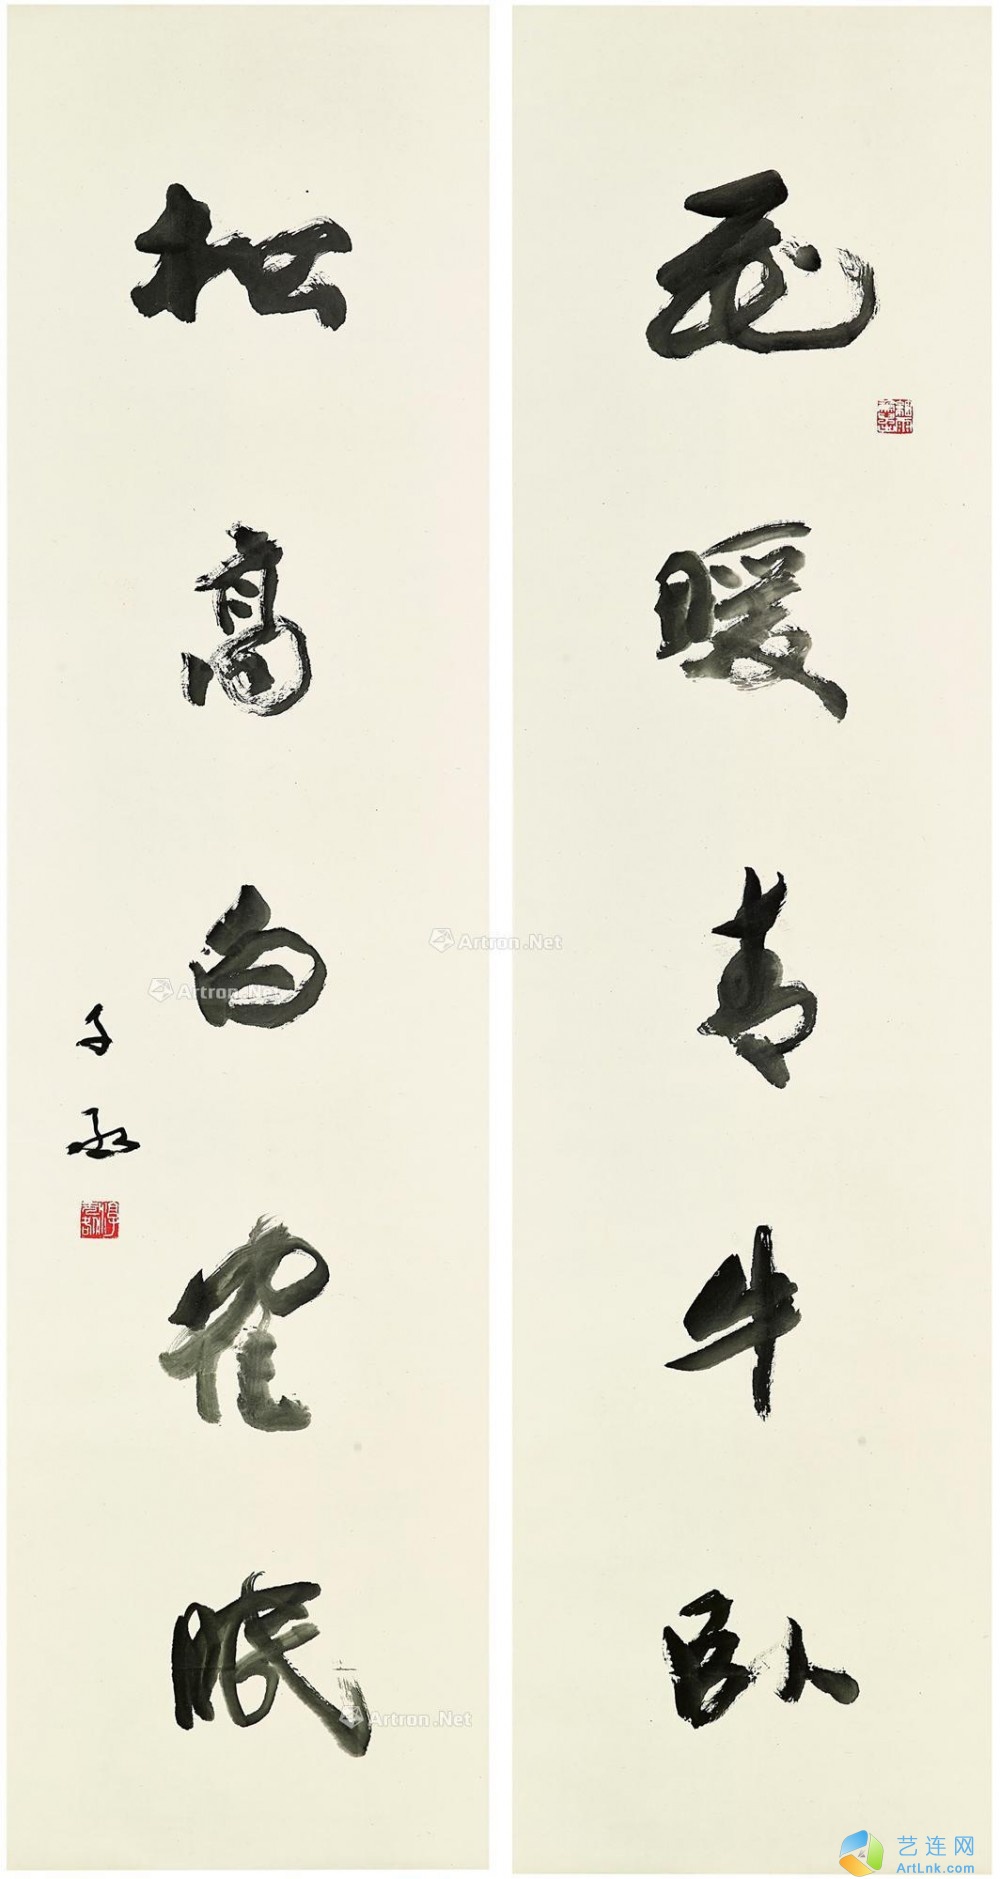 花暖青牛卧
松高白鹤眠
子丞
Artron.Net
Artron.Net
Artron.Net
艺连网
ArtLnk.com